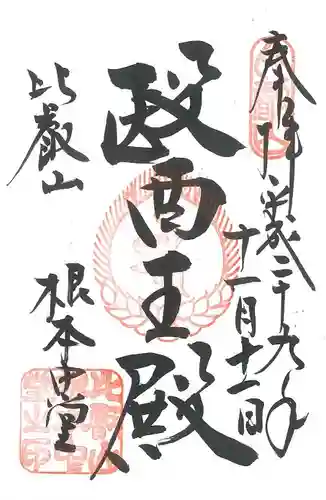 奉拝
平成二十九年
十一月十一日
醫王殿
比叡山
根本中堂